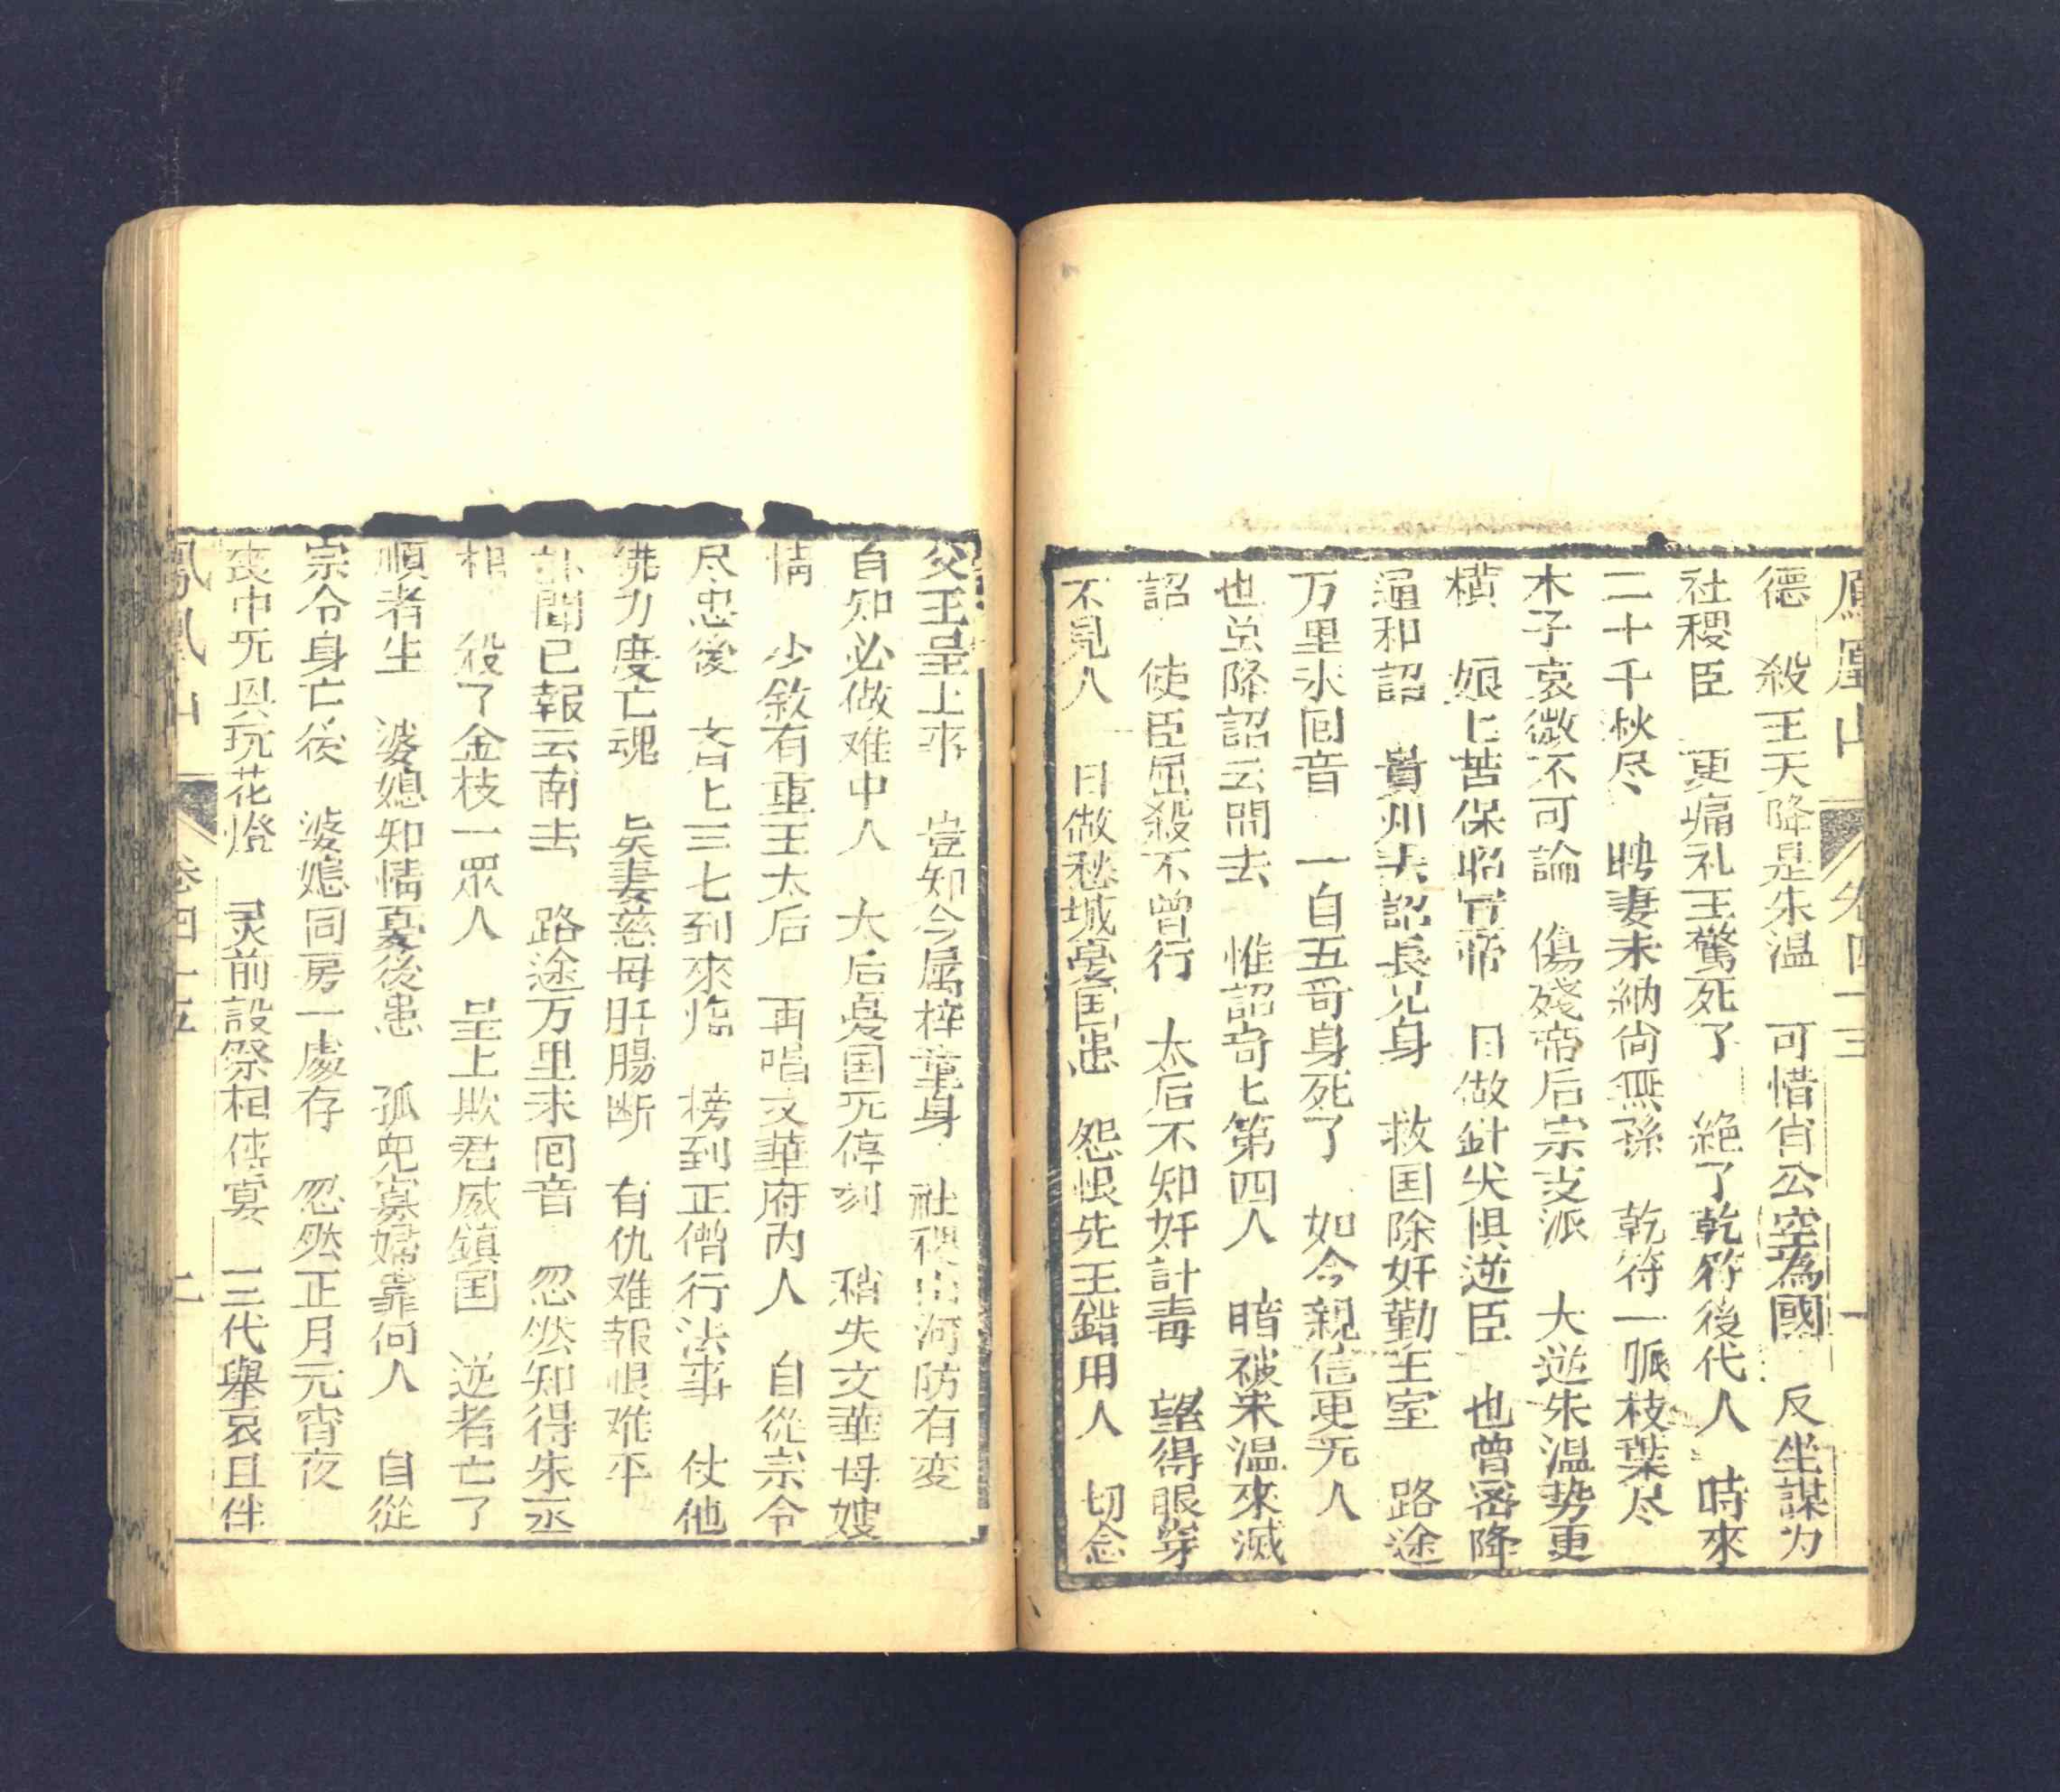 鳳凰山 卷四十三 一
德　殺王天降是朱温　可惜肖公空為國　反坐謀为
社稷臣　更痛礼王驚死了　絶了乾符後代人　時來
二十千秋尽　聘妻未納尚無孫　乾符一脈枝葉尽
木子哀微不可論　傷殘帝后宗支派　大逆朱温势更
横　娘匕苦保昭宣帝　日做針尖惧逆臣　也曾密降
通和詔　貴州夫詔長兄身　救国除奸勤王室　路途
万里永囘音　一自五哥身死了　如今親信更旡人
也並降詔云閙去　惟詔奇匕第四人　暗被朱温來滅
詔　使臣屈殺不曾行　太后不知奸計毒　望得眼穿
不見人　日做愁城憂国患　怨恨先王錯用人　切念
父王呈上來　豈知今属梓童身　社稷山河防有変
自知必做难中人　太后憂国旡停刻　稍失文華母嫂
情　少敘有重王太后　再唱文華府內人　自從宗令
尽忠後　匕三七到來临　榜到正僧行法事　仗他
佛力度亡魂　妻慈母肝腸断　有仇难報恨难平
訃聞已報云南去　路途万里未囘音　忽然知得朱丞
相　殺了金枝一眾人　呈上欺君威鎮国　逆者亡了
順者生　婆媳知情憂後患　孤兒寡婦靠何人　自從
宗令身亡後　婆媳同房一處存　忽然正月元宵夜
丧中旡具玩花燈　灵前設祭相　一三代舉哀且伴
鳳凰山 卷四十五 二